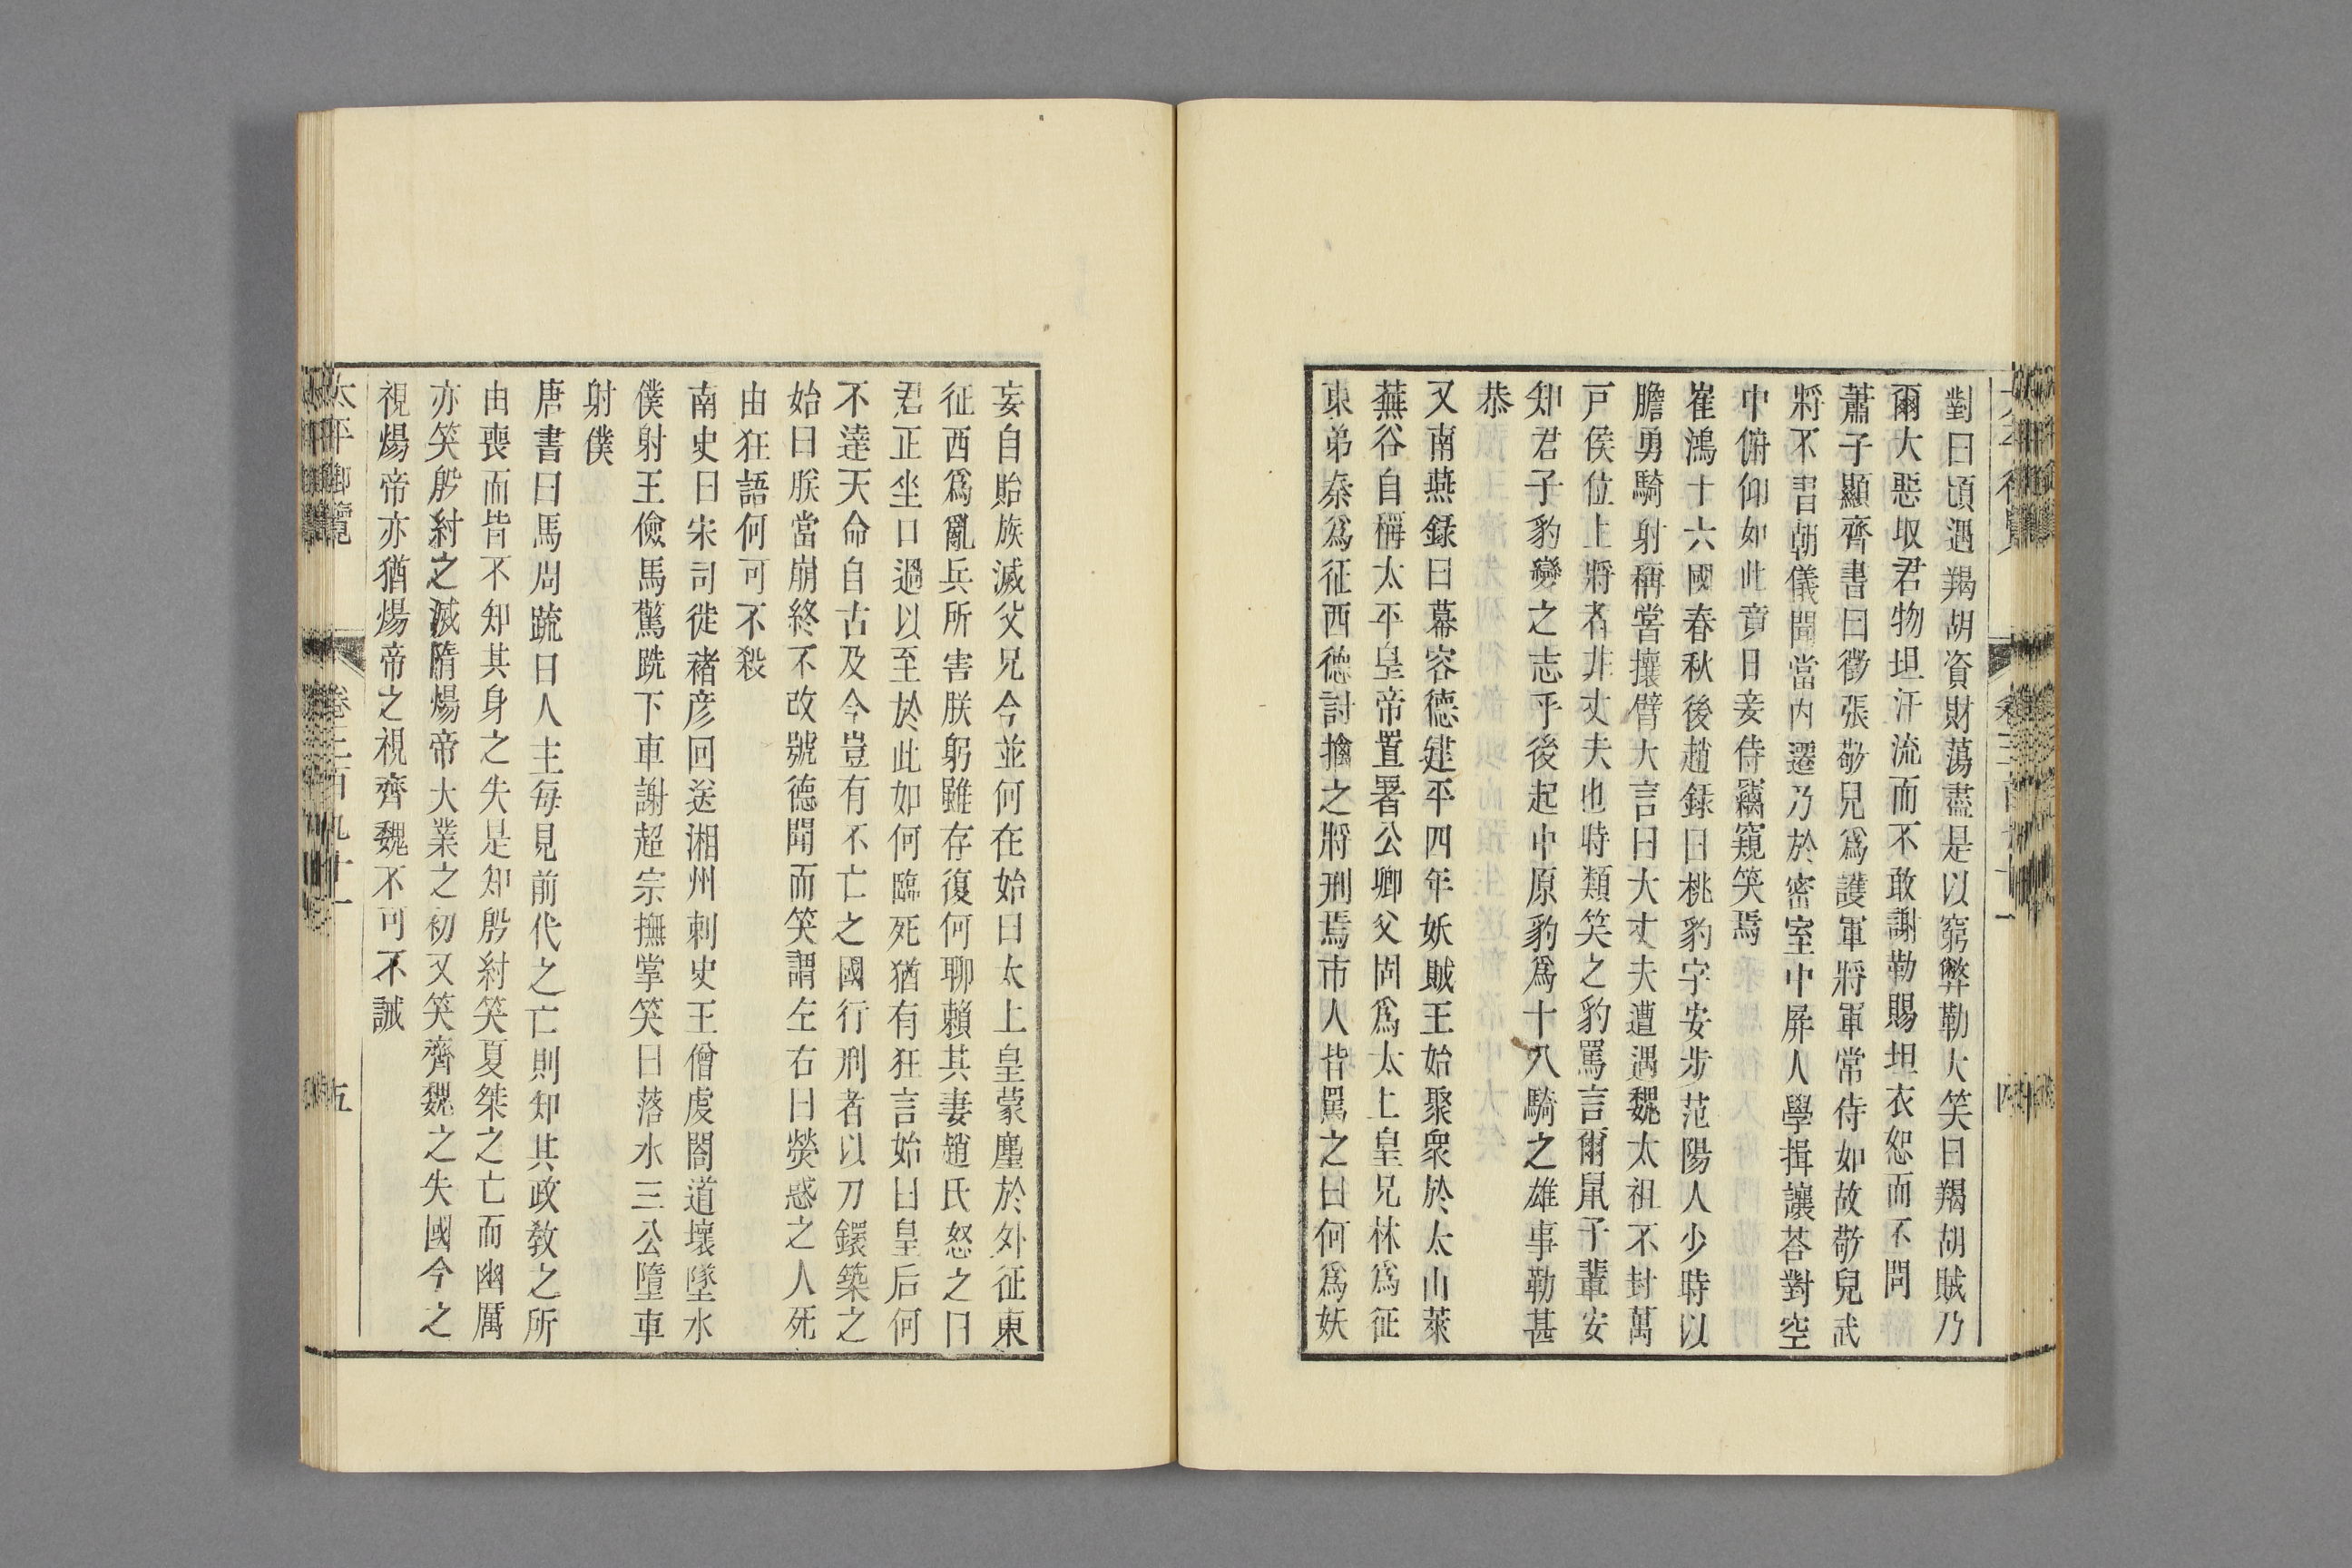 對曰頃遇羯胡資財蕩盡是以窮弊勒大笑曰羯胡賊乃
爾大惡取君物坦汗流而不敢謝勒賜坦衣恕而不問
蕭子顯齊書曰徵張敬兒爲護軍將軍常侍如故敬兒武
將不習朝儀聞當內遷乃於密室中屏人學揖讓荅對空
中俯仰如此竟日妾侍竊窺笑焉
崔鴻十六國春秋後趙錄曰桃豹字安步范陽人少時以
膽勇騎射稱嘗攘臂大言曰大丈夫遭遇魏太祖不封萬
戸侯位上將者非丈夫也時類笑之豹罵言爾鼠子輩安
知君子豹變之志乎後起中原豹爲十八騎之雄事勒甚
恭
又南燕錄曰慕容德建平四年妖賊王始聚衆於太山萊
蕪谷自稱太平皇帝置署公卿父固爲太上皇兄林爲征
東弟秦爲征西德討擒之將刑焉市人皆罵之曰何爲妖
妄自貽族滅父兄今並何在始曰太上皇蒙塵於外征東
征西爲亂兵所害朕躬雖存復何聊賴其妻趙氏怒之曰
君正坐口過以至於此如何臨死猶有狂言始曰皇后何
不達天命自古及今豈有不亡之國行刑者以刀鐶築之
始曰朕當崩終不改號德聞而笑謂左右曰熒惑之人死
由狂語何可不殺
南史曰宋司徙褚彦回送湘州刺史王僧虔閣道壞墜水
僕射王儉馬驚跣下車謝超宗撫掌笑曰落水三公墮車
射僕
唐書曰馬周疏曰人主每見前代之亡則知其政敎之所
由喪而皆不知其身之失是知殷紂笑夏桀之亡而幽厲
亦笑殷紂之滅隋煬帝大業之初又笑齊魏之失國今之
視煬帝亦猶煬帝之視齊魏不可不誡
太平御覽 卷三百九十一 五